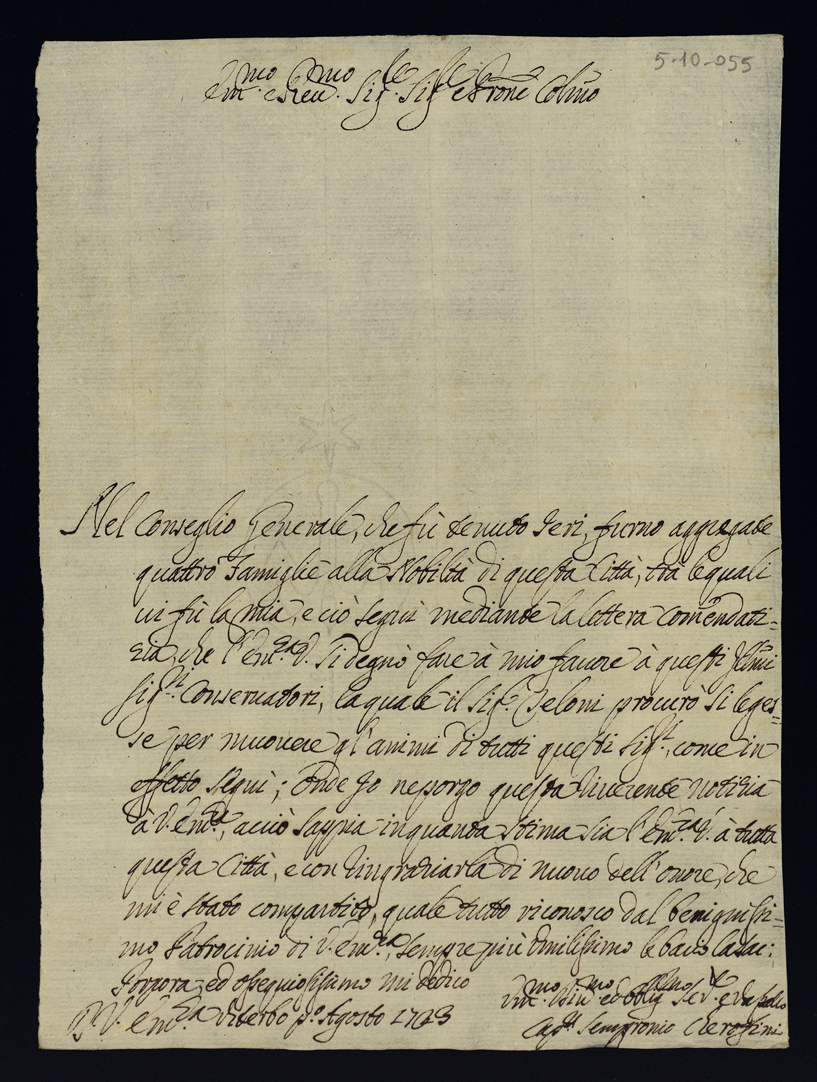 5-10-055
Em.mo e Rev.mo Sig.re Sig.re e Prone Colmo
Nel Conseglio Generale, che fù tenuto Ieri, furno aggregate
quattro Famiglie alla Nobiltà di questa Città, trà le quali
ui fù la mia, e ciò seguì mediante la lettera comendati=
zia, che l'Em.za V. si degnò fare à mio fauore à questi Illmi
Sig.ri Conseruatori, la quale il Sig.r Beloni procurò si leges=
se per muouere gl'animi di tutti questi Sig.ri, come in
effetto seguì; onde Io ne porgo questa riuerente notizia
à V. Em.za, acciò sappia in quanta stima sia l'Em.za V. à tutta
questa Città, e con ringraziarla di nuouo dell'onore, che
mi è stato compartito, quale tutto riconosco dal benignissi=
mo Patrocinio di V. Em.za, sempre più Umilissimo le bacio la Sac:
Porpora, ed ossequiosissimo mi dedico
D. V. Em.za Viterbo p.o Agosto 1723
Um.mo Diu.mo ed Obblig.mo Se.re
Cap.n Sempronio